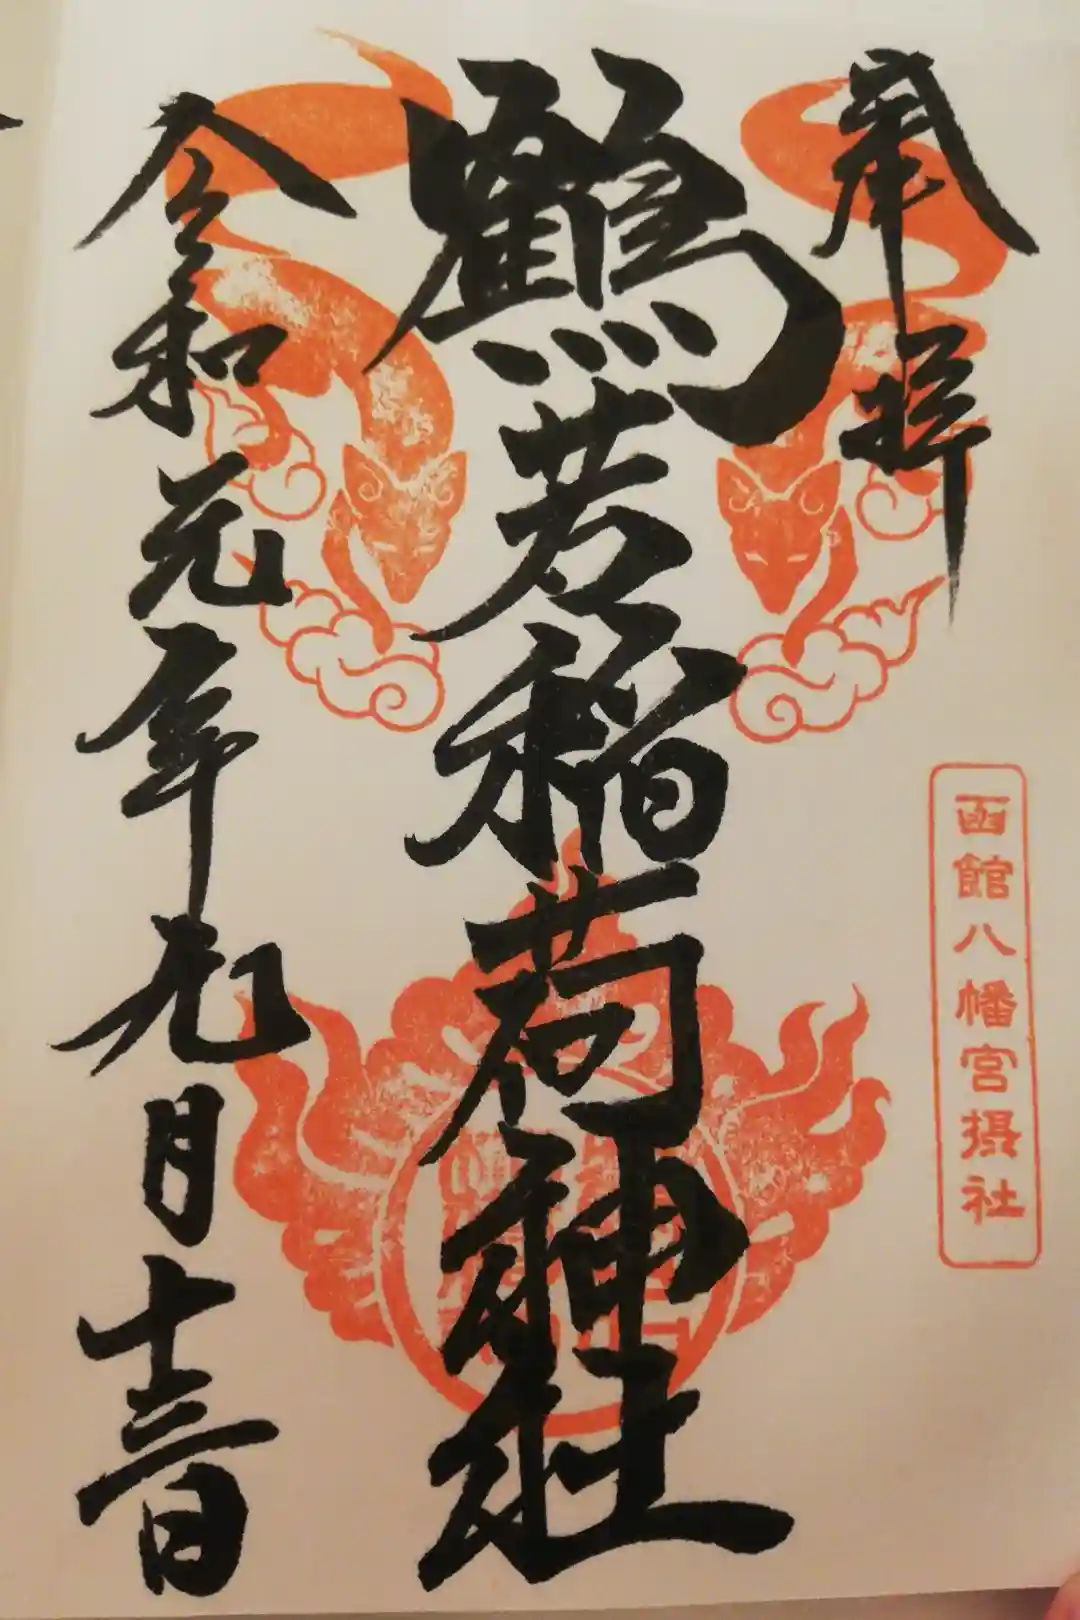 奉拝
函館八幡宮摂社
鶴若稲荷神社
令和元年九月十三日